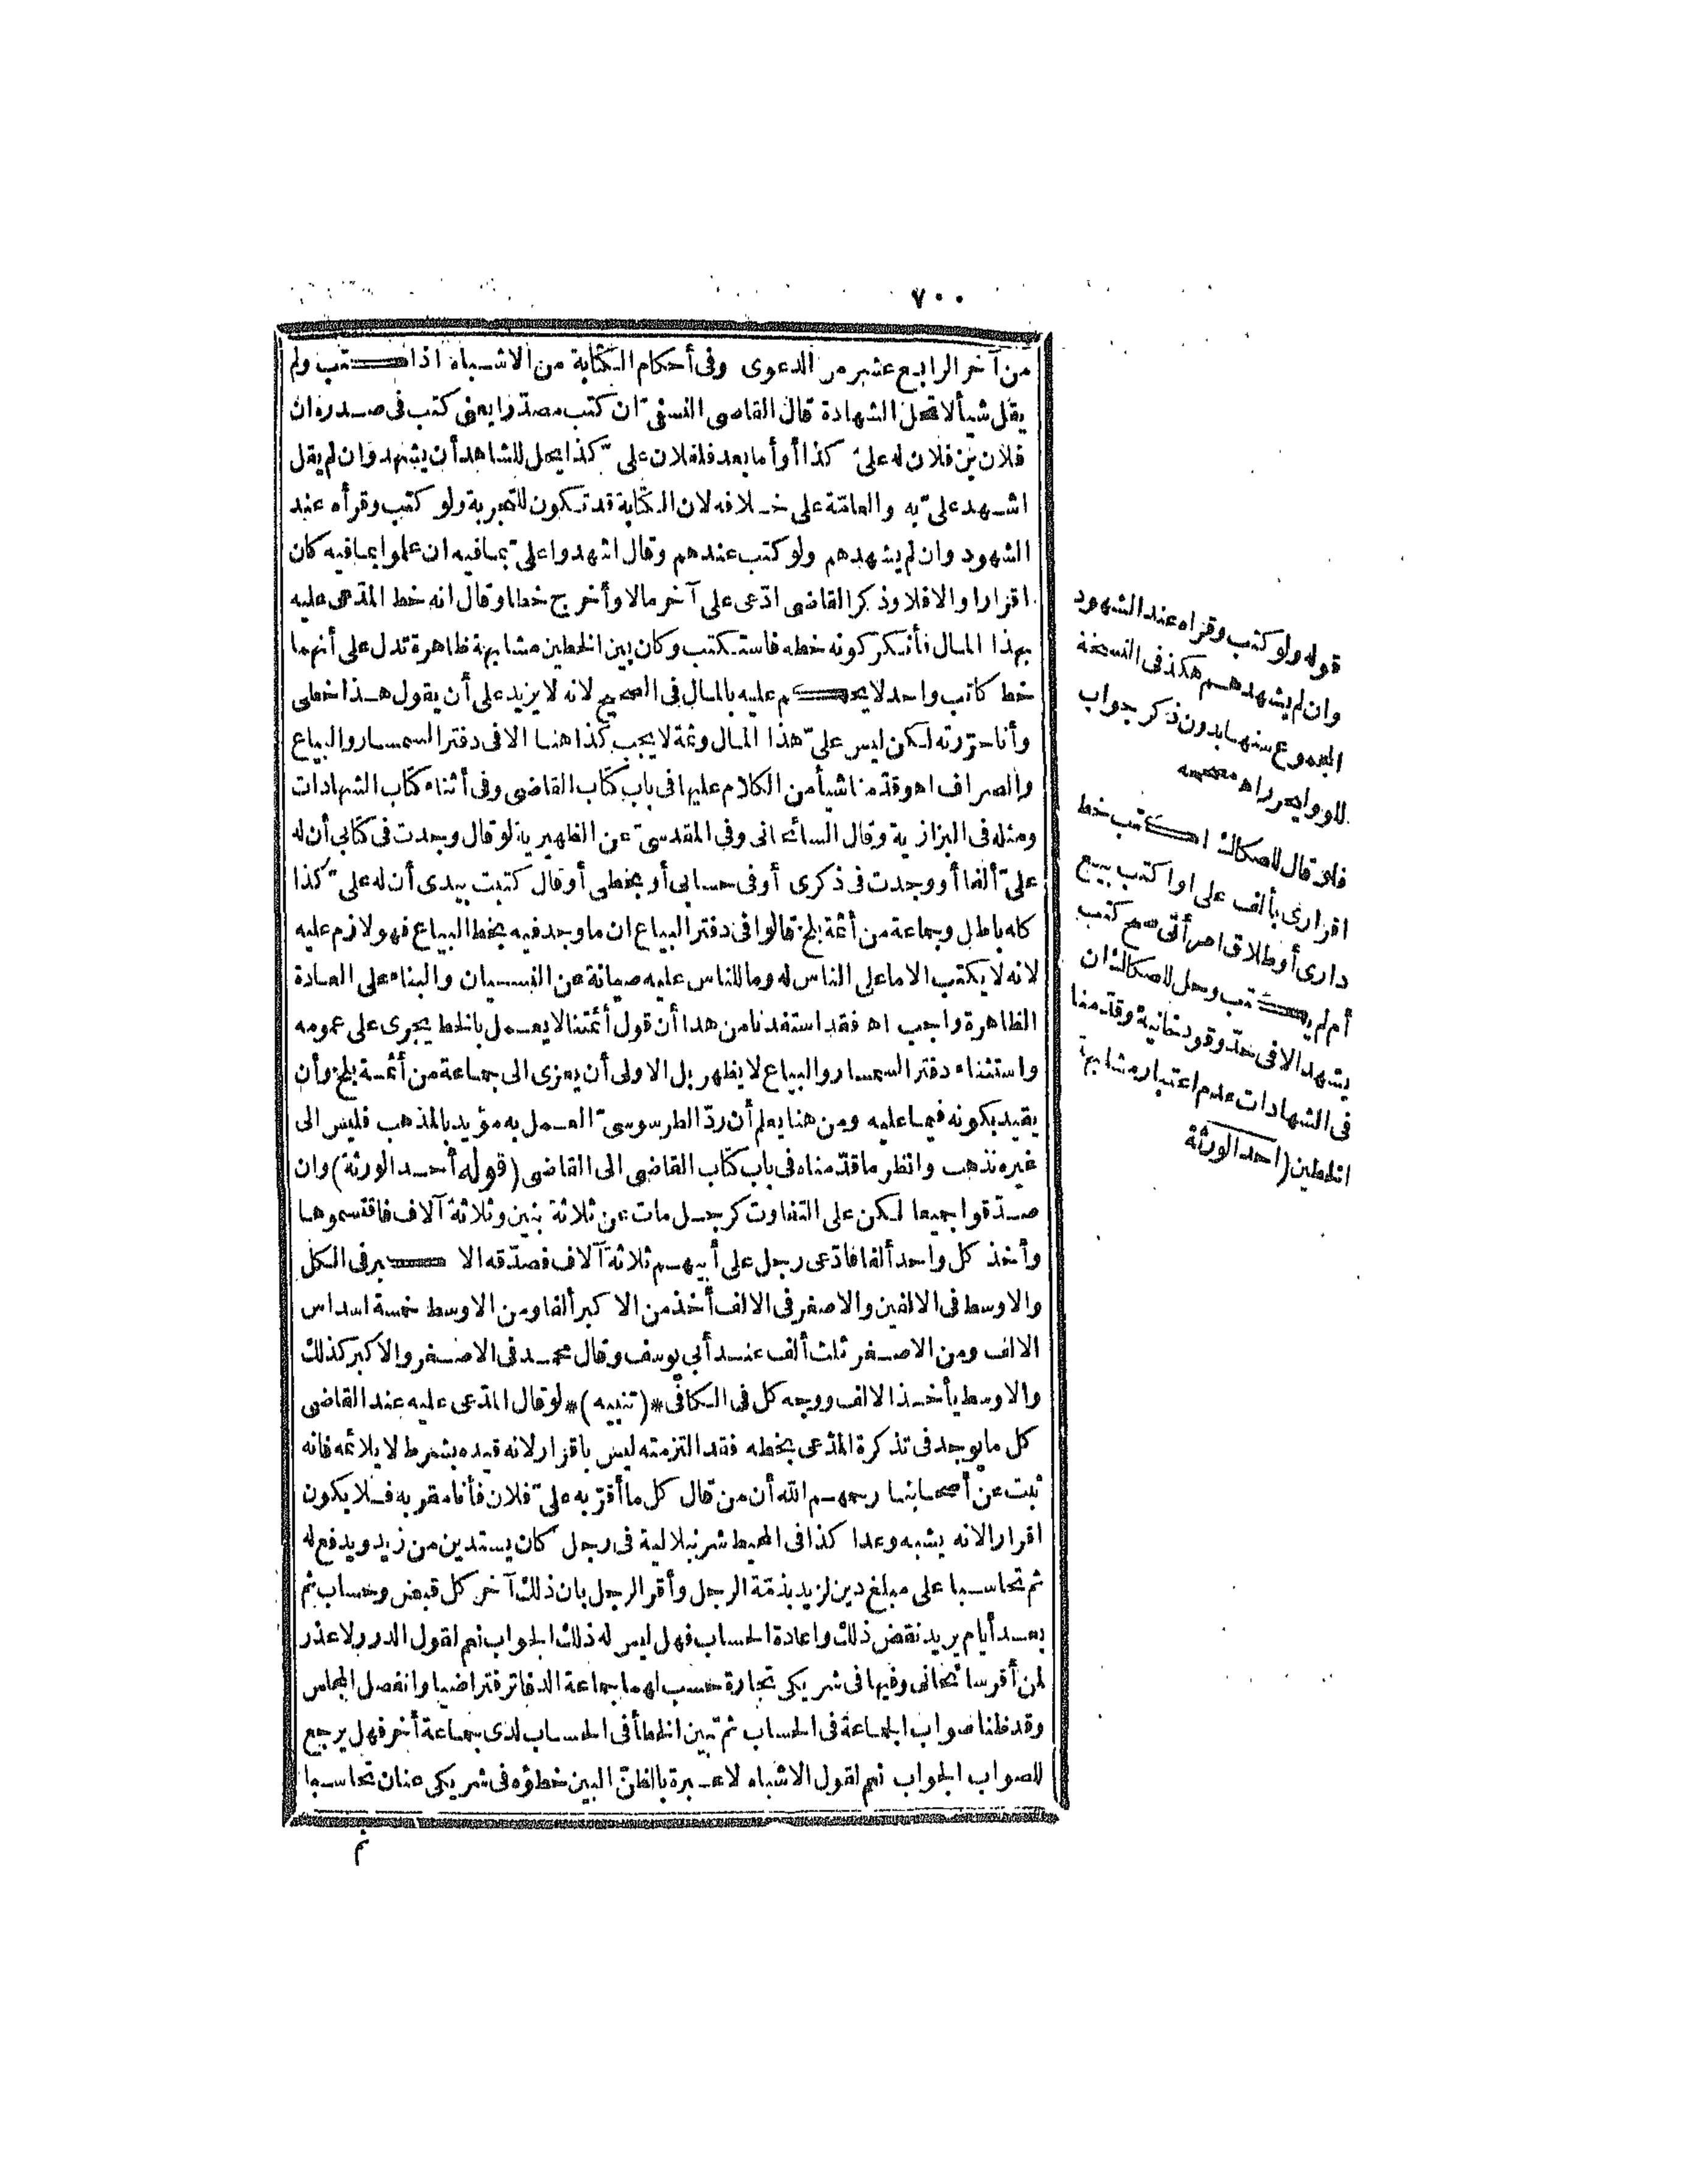 ٧٠٠
من آخر الرابع عشر من الدعوى وفى أحكام الكتابة من الاشباه اذا كتب ولم
يقل شيأ لا تحل الشهادة قال القاضى النسفىّ ان كتب مصدّرا يعنى كتب فى صدره ان
فلان بن فلان له علىّ كذا أو أما بعد فلفلان علىّ كذا يحل للشاهد أن يشهد وان لم يقل
اشهد علىّ به والعامّة على خلافه لان الكتابة قد تكون للتجربة ولو كتب وقرأه عند
الشهود وان لم يشهدهم ولو كتب عندهم وقال اشهدوا علىّ بما فيه ان علموا بما فيه كان
اقرارا والا فلا وذكر القاضى ادّعى على آخر مالا وأخرج خطا وقال انه خط المدّعى عليه
بهذا المال فأنكر كونه خطه فاستكتب وكان بين الخطين مشابهة ظاهرة تدل على أنهما
خط كاتب واحد لا يحكم عليه بالمال فى الصحيح لانه لا يزيد على أن يقول هذا خطى
وأنا حرّرته لكن ليس علىّ هذا المال وثمة لا يجب كذا هنا الا فى دفتر السمسار والبياع
والصراف اه وقدّمنا شيأ من الكلام عليها فى باب كتاب القاضى وفى أثناء كتاب الشهادات
ومثله فى البزازية وقال السائحانى وفى المقدسىّ عن الظهيرية لو قال وجدت فى كتابى أن له
علىّ ألفا أو وجدت فى ذكرى أو فى حسابى أو بخطى أو قال كتبت بيدى أن له علىّ كذا
كله باطل وجماعة من أئمة بلخ قالوا فى دفتر البياع ان ما وجد فيه بخط البياع فهو لازم عليه
لانه لا يكتب الا ما على الناس له وما للناس عليه صيانة عن النسيان والبناء على العادة
الظاهرة واجب اه فقد استفدنا من هذا أن قول أئمتنا لا يعمل بالخط يجرى على عمومه
واستثناء دفتر السمسار والبياع لا يظهر بل الاولى أن يعزى الى جماعة من أئمة بلخ وأن
يقيد بكونه فيما عليه ومن هنا يعلم أن ردّ الطرسوسىّ العمل به مؤيد بالمذهب فليس الى
غيره نذهب وانظر ما قدّمناه فى باب كتاب القاضى الى القاضى (قوله أحد الورثة) وان
صدّقوا جميعا لكن على التفاوت كرجل مات عن ثلاثة بنين وثلاثة آلاف فاقتسموها
وأخذ كل واحد ألفا فادّعى رجل على أبيهم ثلاثة آلاف فصدّقه الاكبر فى الكل
والاوسط فى الالفين والاصغر فى الالف أخذ من الاكبر ألفا ومن الاوسط خمسة اسداس
الالف ومن الاصغر ثلث ألف عند أبى يوسف وقال محمد فى الاصغر والاكبر كذلك
والاوسط يأخذ الالف ووجه كل فى الكافى *(تنبيه)* لو قال المدّعى عليه عند القاضى
كل ما يوجد فى تذكرة المدّعى بخطه فقد التزمته ليس باقرار لانه قيده بشرط لا يلائمه فانه
ثبت عن أصحابنا رحمهم الله أن من قال كل ما أقرّ به علىّ فلان فأنا مقر به فلا يكون
اقرارا لانه يشبه وعدا كذا فى المحيط شرنبلالية فى رجل كان يستدين من زيد ويدفع له
ثم تحاسبا على مبلغ دين لزيد بذمّة الرجل وأقر الرجل بان ذلك آخر كل قبض وحساب ثم
بعد أيام يريد نقض ذلك واعادة الحساب فهل ليس له ذلك الجواب نعم لقول الدرر ولا عذر
لمن أقر سائحانى وفيها فى شريكى تجارة حسب لهما جماعة الدفاتر فتراضيا وانفصل المجلس
وقد ظنا صواب الجماعة فى الحساب ثم تبين الخطأ فى الحساب لدى جماعة أخر فهل يرجع
للصواب الجواب نعم لقول الاشباه لا عبرة بالظنّ البين خطؤه فى شريكى عنان تحاسبا
ثم
قوله ولو كتب وقرأه عند الشهود
وان لم يشهدهم هكذا فى النسخة
المجموع منها بدون ذكر جواب
للو وليحرر اه مصححه
فلو قال للصكاك اكتب خط
اقرارى بألف على او اكتب بيع
دارى أو طلاق امرأتى صح كتب
أم لم يكتب وحل للصكاك ان
يشهد الا فى حدّ وقود خانية وقدّمنا
فى الشهادات عدم اعتبار مشابهة
الخطين (احد الورثة